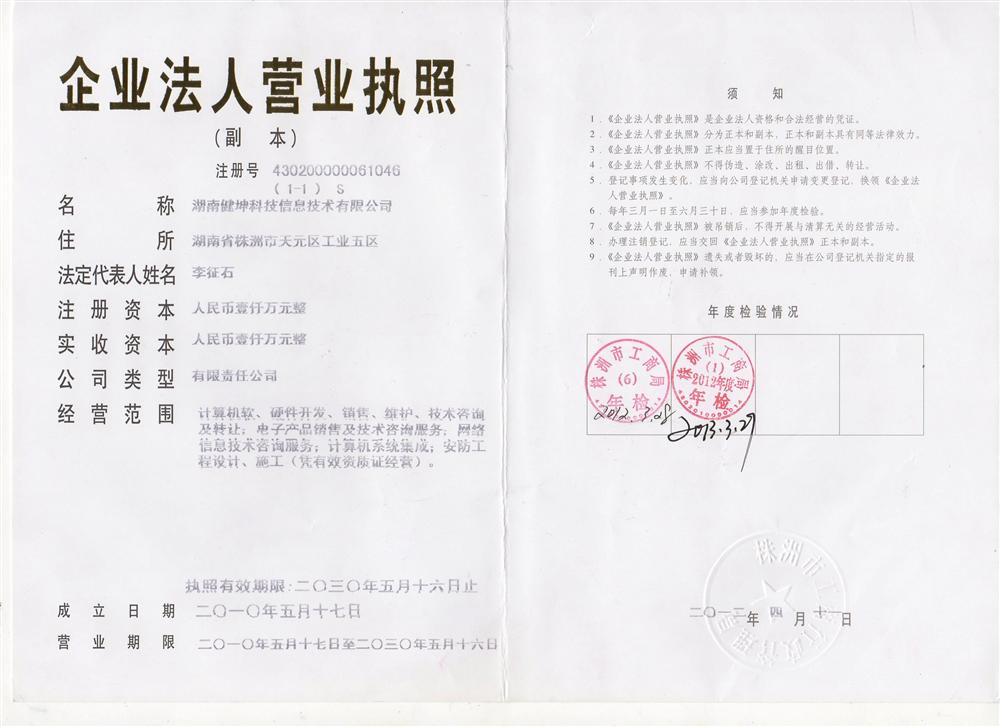 企业法人营业执照
（副 本）
注册号 430200000061046
（1-1） S
名 称 湖南健坤科技信息技术有限公司
住 所 湖南省株洲市天元区工业五区
法定代表人姓名 李征石
注 册 资 本 人民币壹仟万元整
实 收 资 本 人民币壹仟万元整
公 司 类 型 有限责任公司
经 营 范 围 计算机软、硬件开发、销售、维护、技术咨询
及转让；电子产品销售及技术咨询服务；网络
信息技术咨询服务；计算机系统集成；安防工
程设计、施工（凭有效资质证经营）。
执照有效期限:二〇三〇年五月十六日止
成 立 日 期 二〇一〇年五月十七日
营 业 期 限 二〇一〇年五月十七日至二〇三〇年五月十六日
须 知
1．《企业法人营业执照》是企业法人资格和合法经营的凭证。
2．《企业法人营业执照》分为正本和副本，正本和副本具有同等法律效力。
3．《企业法人营业执照》正本应当置于住所的醒目位置。
4．《企业法人营业执照》不得伪造、涂改、出租、出借、转让。
5．登记事项发生变化，应当向公司登记机关申请变更登记，换领《企业法
人营业执照》。
6．每年三月一日至六月三十日，应当参加年度检验。
7．《企业法人营业执照》被吊销后，不得开展与清算无关的经营活动。
8．办理注销登记，应当交回《企业法人营业执照》正本和副本。
9．《企业法人营业执照》遗失或者毁坏的，应当在公司登记机关指定的报
刊上声明作废，申请补领。
年度检验情况
株洲市工商局
（6）
年检
2012.3.28
株洲市工商局
（1）
2012年度
年检
2013.3.27
株洲市工商行政管理局
二〇一二年 四 月 十一 日